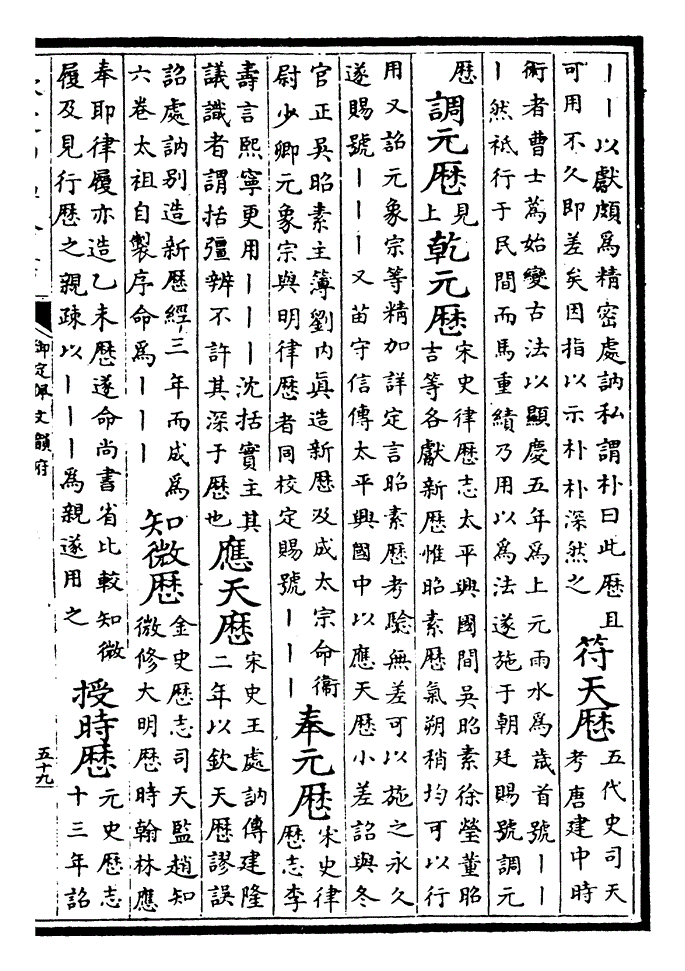 ｜｜以獻頗爲精密處訥私謂朴曰此厯且
可用不久即差矣因指以示朴朴深然之
符天厯
五代史司天
考唐建中時
術者曹士蔿始變古法以顯慶五年爲上元雨水爲歲首號｜｜
｜然祗行于民間而馬重績乃用以爲法遂施于朝廷賜號調元
厯
調元厯
見
上
乾元厯
宋史律厯志太平興國間吳昭素徐瑩董昭
吉等各獻新厯惟昭素厯氣朔稍均可以行
用又詔元象宗等精加詳定言昭素厯考驗無差可以施之永久
遂賜號｜｜｜又苗守信傳太平興國中以應天厯小差詔與冬
官正吳昭素主簿劉内真造新厯及成太宗命衛
尉少卿元象宗與明律厯者同校定賜號｜｜｜
奉元厯
宋史律
厯志李
壽言熙寧更用｜｜｜沈括實主其
議識者謂括彊辨不許其深于厯也
應天厯
宋史王處訥傳建隆
二年以欽天厯謬誤
詔處訥别造新厯經三年而成爲
六卷太祖自製序命爲｜｜｜
知微厯
金史厯志司天監趙知
微修大明厯時翰林應
奉耶律履亦造乙未厯遂命尚書省比較知微
履及見行厯之親疎以｜｜｜爲親遂用之
授時厯
元史厯志
十三年詔
御定佩文韻府
五十九